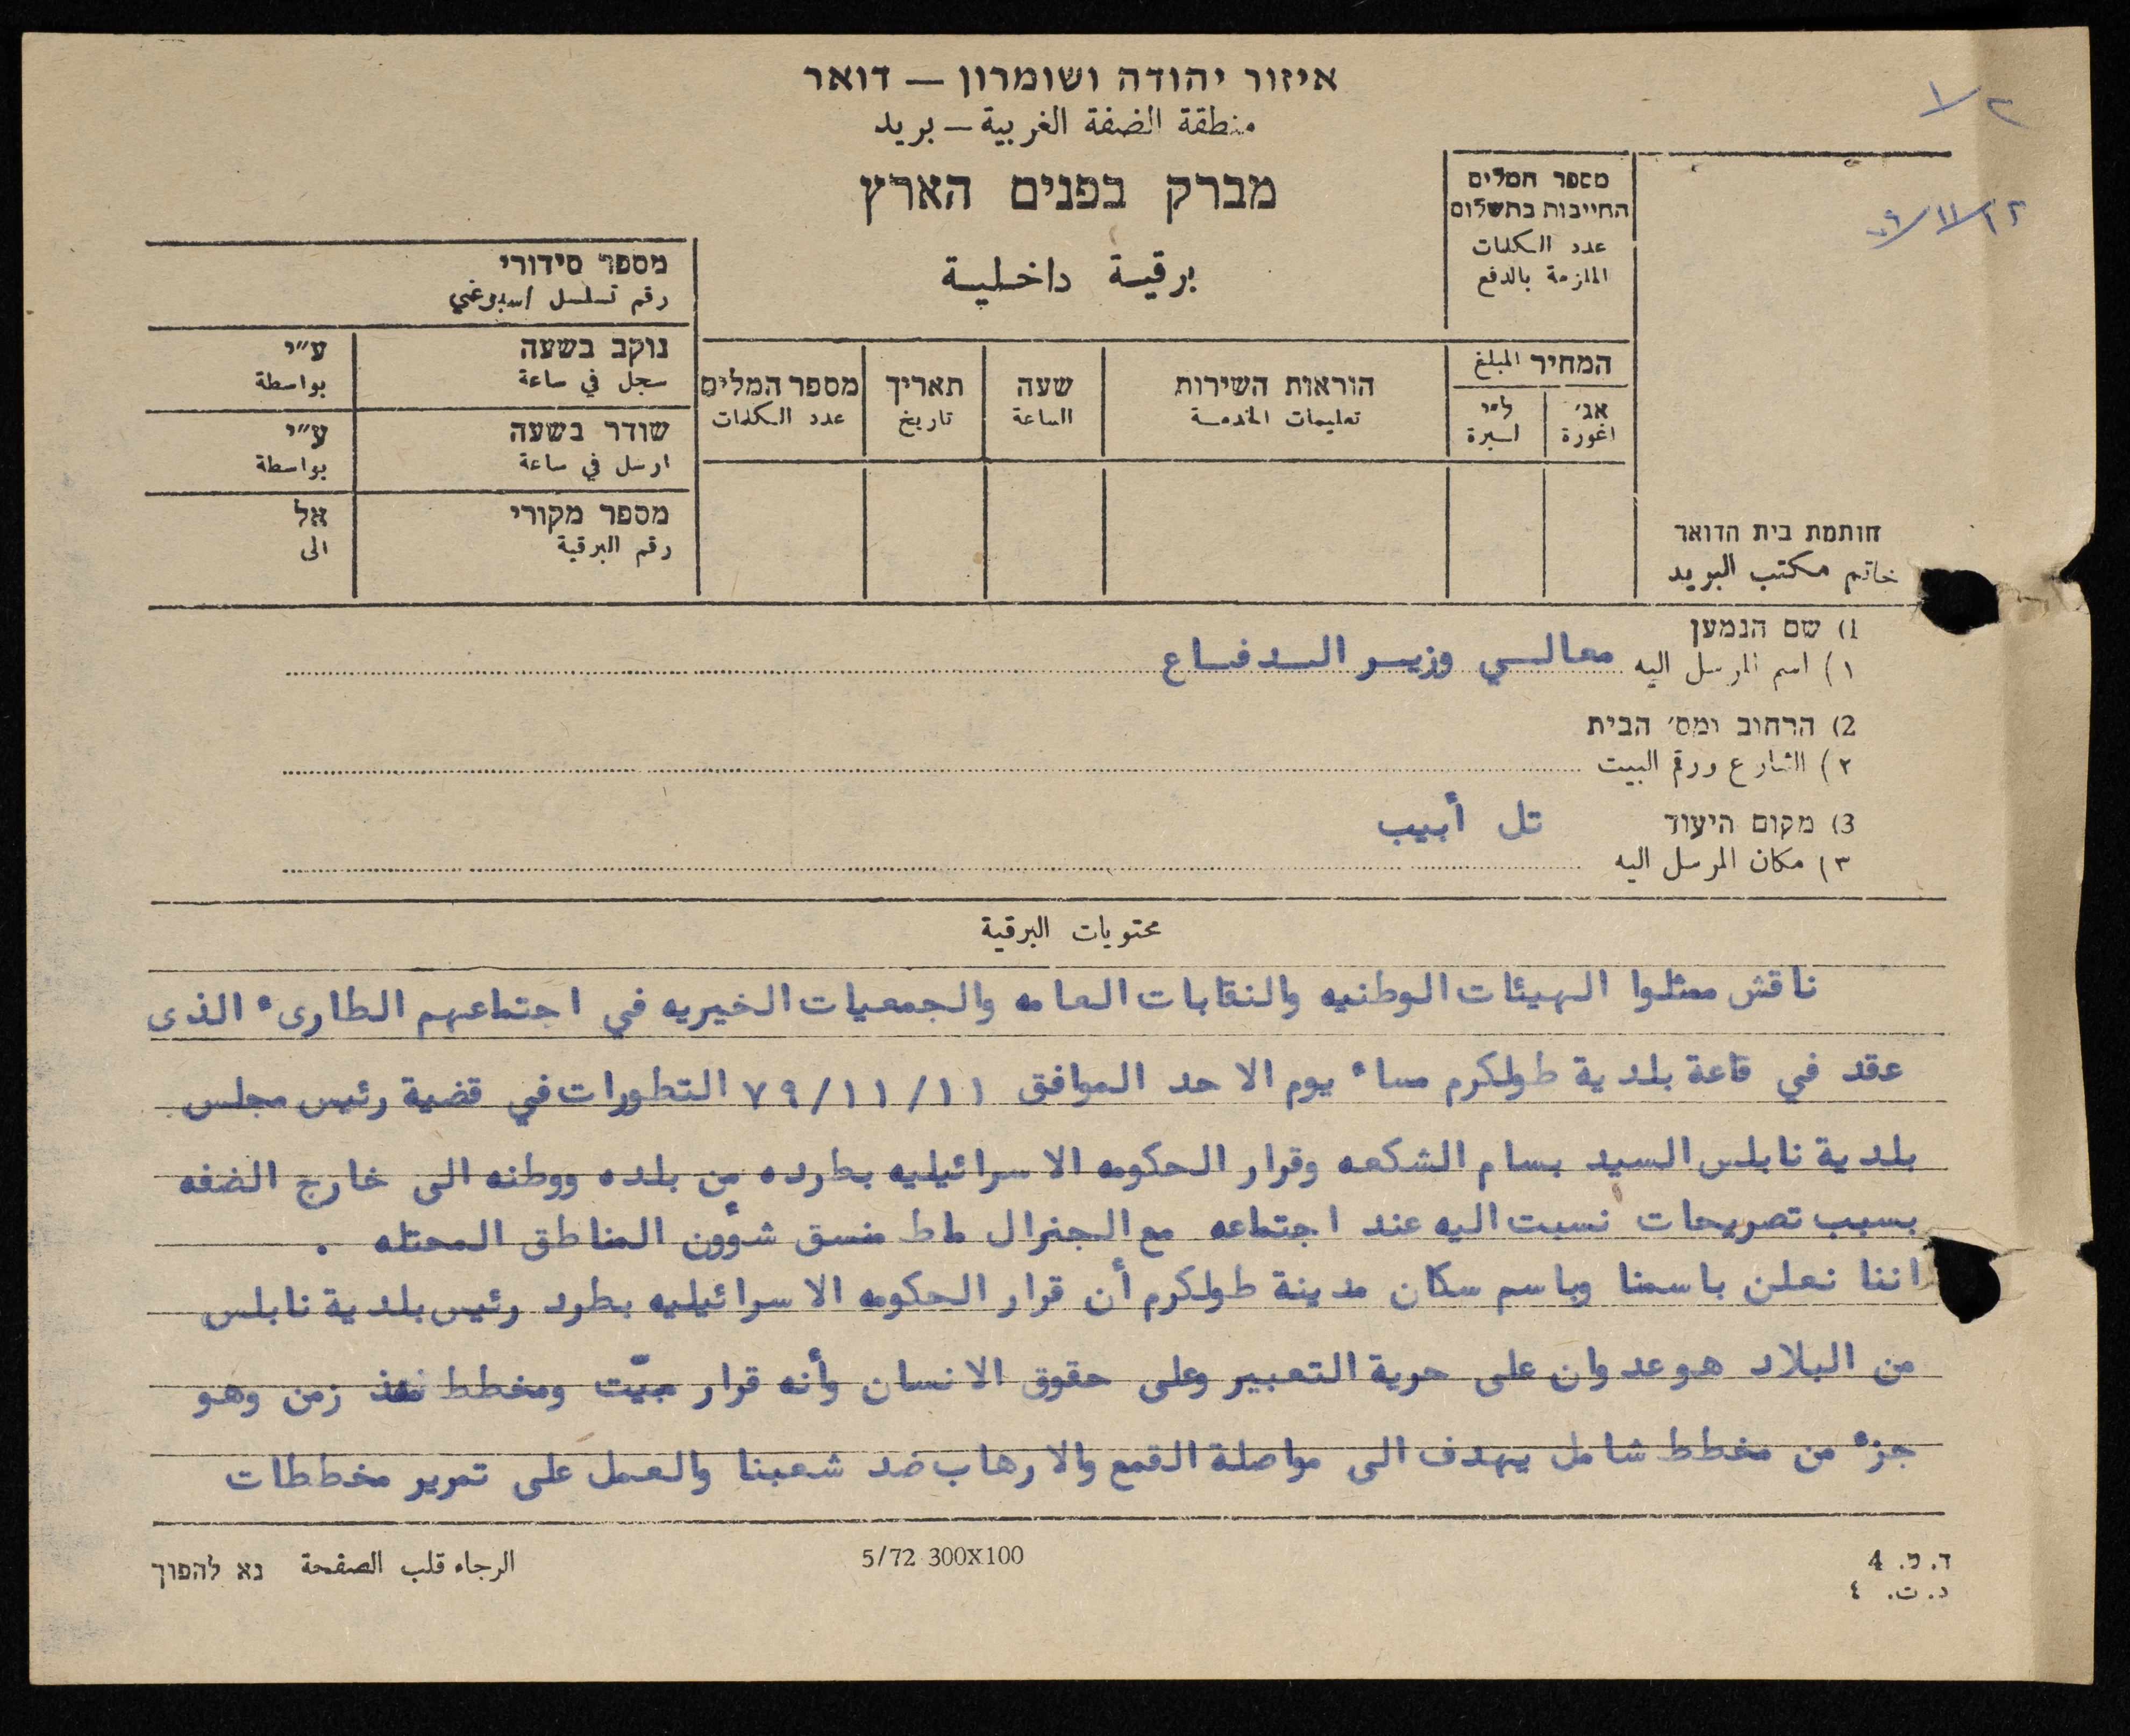 איזור יהודה ושומרון — דואר
منطقة الضفة الغربية — بريد
מברק בפנים הארץ
برقية داخلية
٢/١
١٢/١١/
מספר המלים
החייבות בתשלום
عدد الكلمات
الملزمة بالدفع
מספר סידורי
رقم تسلسل اسبوعي
נוקב בשעה ע״י
سجل في ساعة بواسطة
שודר בשעה ע״י
ارسل في ساعة بواسطة
מספר מקורי אל
رقم البرقية الى
המחיר المبلغ
אג׳ ל״י
اغورة ليرة
הוראות השירות
تعليمات الخدمة
שעה
الساعة
תאריך
تاريخ
מספר המלים
عدد الكلمات
חותמת בית הדואר
خاتم مكتب البريد
1) שם הנמען
١) اسم المرسل اليه معالي وزير الدفاع
2) הרחוב ומס׳ הבית
٢) الشارع ورقم البيت
3) מקום היעוד تل أبيب
٣) مكان المرسل اليه
محتويات البرقية
ناقش ممثلوا الهيئات الوطنيه والنقابات العامه والجمعيات الخيريه في اجتماعهم الطارىء الذى
عقد في قاعة بلدية طولكرم مساء يوم الاحد الموافق ٧٩/١١/١١ التطورات في قضية رئيس مجلس
بلدية نابلس السيد بسام الشكعه وقرار الحكومه الاسرائيليه بطرده من بلده ووطنه الى خارج الضفه
بسبب تصريحات نسبت اليه عند اجتماعه مع الجنرال ماط منسق شؤون المناطق المحتله .
اننا نعلن باسمنا وباسم سكان مدينة طولكرم أن قرار الحكومه الاسرائيليه بطرد رئيس بلدية نابلس
من البلاد هو عدوان على حرية التعبير وعلى حقوق الانسان وأنه قرار مبيّت ومخطط منذ زمن وهو
جزء من مخطط شامل يهدف الى مواصلة القمع والارهاب ضد شعبنا والعمل على تمرير مخططات
ד. ת. 4
د. ت. ٤
5/72 300X100
الرجاء قلب الصفحة נא להפוך